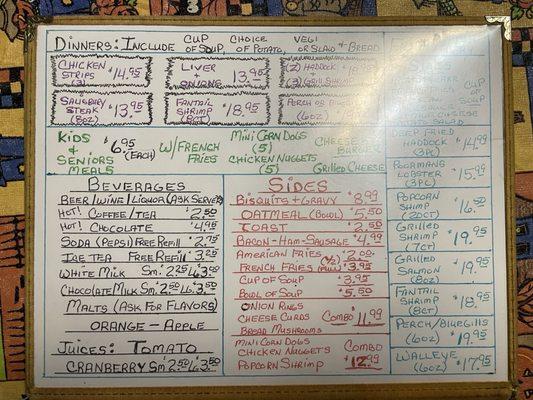 DINNERS: INCLUDE CUP OF SOUP, CHOICE OF POTATO, VEGI OR SLAW & BREAD
CHICKEN STRIPS (3) $14.95
LIVER & ONIONS 13.95
(2) HADDOCK & (3) GRILL SHRIMP
SALISBURY STEAK (8oz) $13.95
FANTAIL SHRIMP (8CT) $18.95
PERCH OR (6oz)
KIDS & SENIORS MEALS
$6.95 (EACH)
W/FRENCH FRIES
MINI CORN DOGS (5)
CHICKEN NUGGETS (5)
CHEESE BURGER
GRILLED CHEESE
BEVERAGES
BEER/WINE/LIQUOR (ASK SERVER)
HOT! COFFEE/TEA $2.50
HOT! CHOCOLATE $4.95
SODA (PEPSI) FREE REFILL $2.75
ICE TEA FREE REFILL $3.25
WHITE MILK Sm. 2.25 LG 3.50
CHOCOLATE MILK Sm. 2.50 LG 3.50
MALTS (ASK FOR FLAVORS)
ORANGE - APPLE
JUICES: TOMATO
CRANBERRY Sm 2.50 LG 3.50
SIDES
BISQUITS & GRAVY $8.99
OATMEAL (BOWL) $5.50
TOAST $2.50
BACON-HAM-SAUSAGE $4.99
AMERICAN FRIES (1/2) 2.00
FRENCH FRIES (FULL) $3.95
CUP OF SOUP $3.95
BOWL OF SOUP $5.50
ONION RINGS
CHEESE CURDS COMBO $11.99
BREAD MUSHROOMS
MINI CORN DOGS
CHICKEN NUGGETS COMBO
POPCORN SHRIMP $12.99
CUP OF SOUP
DEEP FRIED HADDOCK (3PC) $14.99
POORMANS LOBSTER (3PC) $15.95
POPCORN SHIMP (20CT) $16.50
GRILLED SHRIMP (7CT) $19.95
GRILLED SALMON (8oz) $19.95
FANTAIL SHRIMP (8CT) $18.95
PERCH/BLUEGILLS (6oz) $19.95
WALLEYE (6oz) $17.95